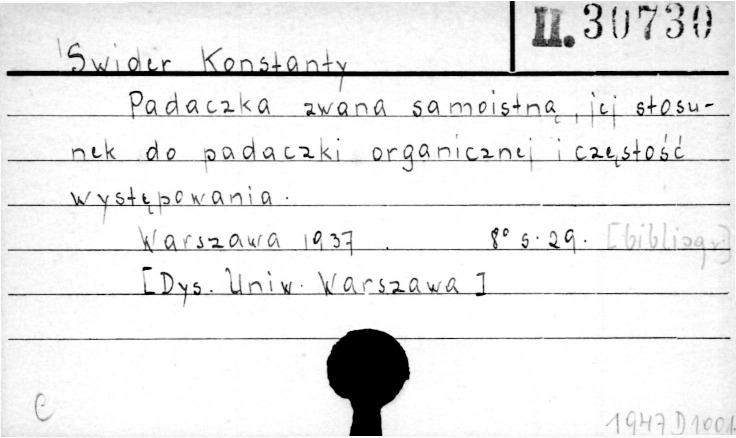 II. 30730
Świder Konstanty
Padaczka zwana samoistną, jej stosu-
nek do padaczki organicznej i częstość
występowania.
Warszawa 1937. 8° s. 29. [bibliogr.]
[Dys. Uniw. Warszawa]
C
1947 D 1001